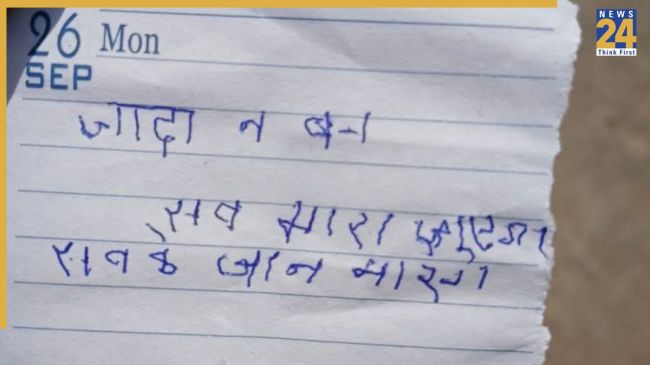 26 Mon
SEP
NEWS
24
Think First
जादा न बन
सब मारा जाएगा
सबके जान मारेगा